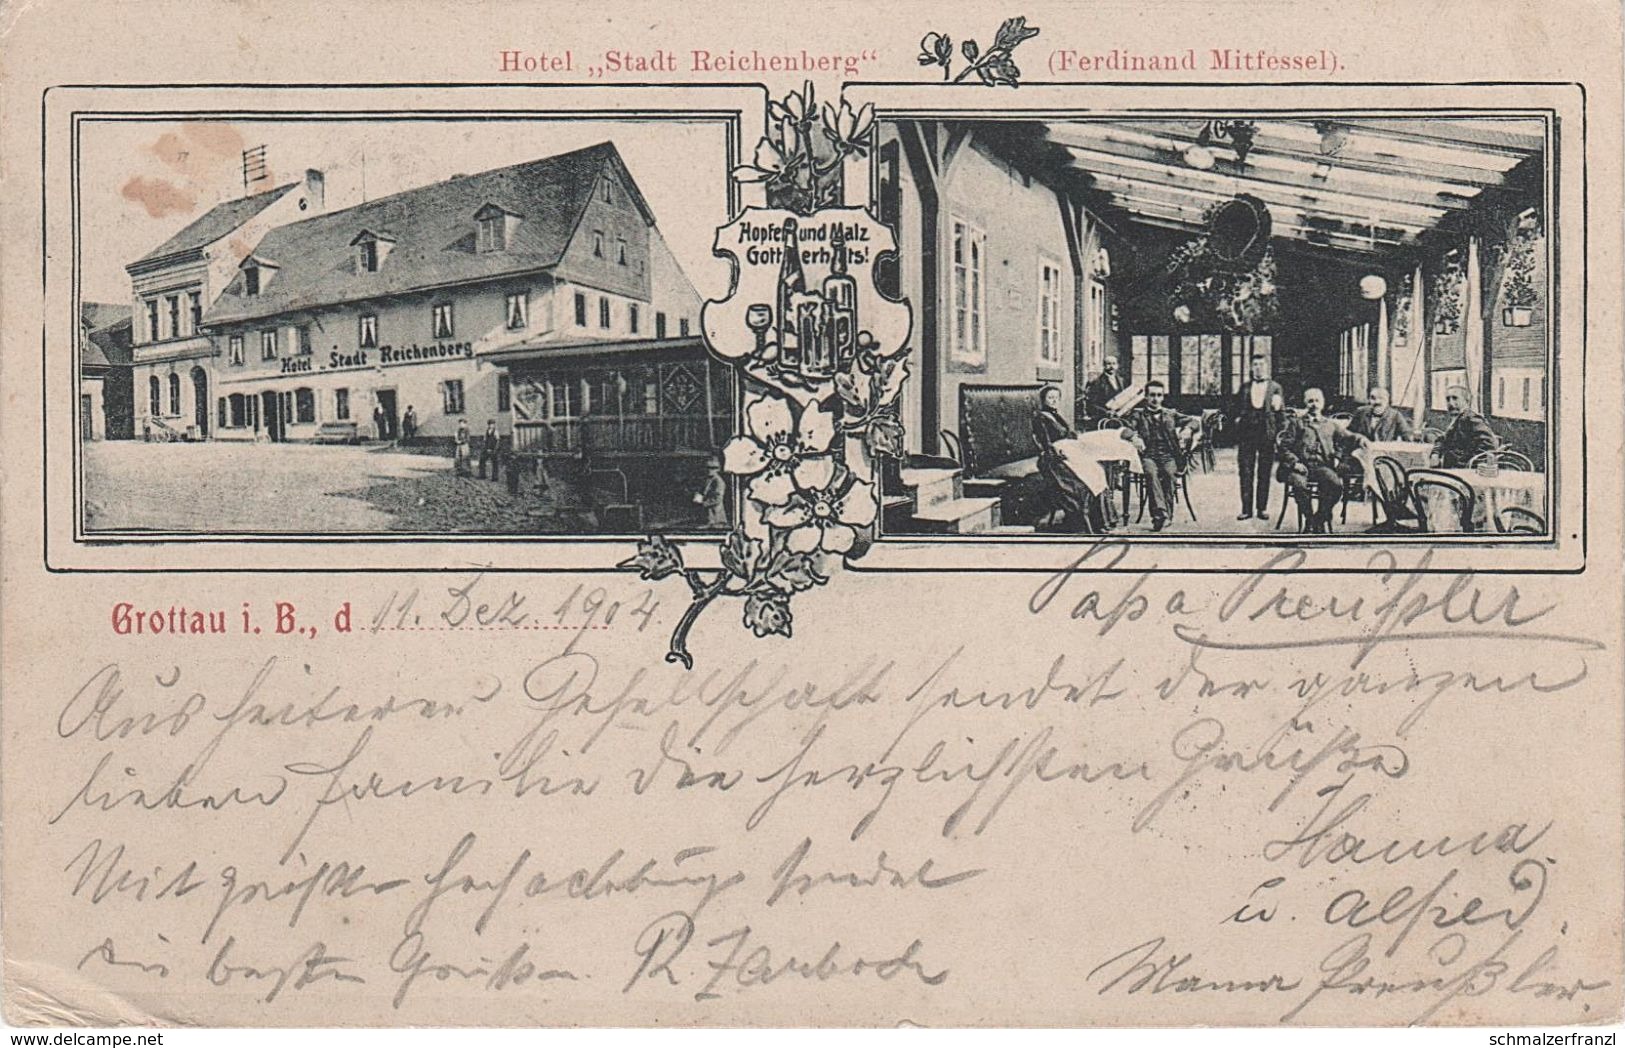 Hotel „Stadt Reichenberg“ (Ferdinand Mitfessel).
Hopfen und Malz
Gott erhalts!
Hotel „Stadt Reichenberg
Grottau i. B., d 11. Dez. 1904.
Papa Preußler
Aus heiterer Gesellschaft sendet der ganzen
lieben Familie die herzlichsten Grüße
Hanna
u. Alfred.
Mit größter Hochachtung sendet
die besten Grüße. R.
Mama Preußler.
www.delcampe.net
schmalzerfranzl